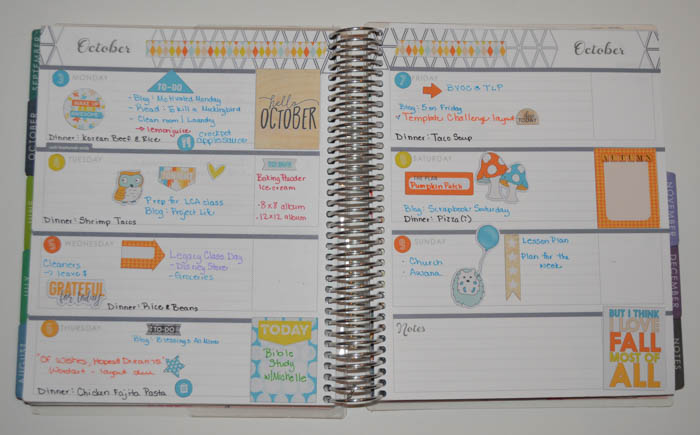 October
3 MONDAY
WAKE UP
AWESOME
TO-DO
- Blog: Motivated Monday
- Read: To Kill a Mockingbird
- Clean room | Laundry
→ lemon juice
crockpot
applesauce
Dinner: Korean Beef & Rice
hello
OCTOBER
4 TUESDAY
Prep for LCA class
Blog: Project Life
Dinner: Shrimp Tacos
TO BUY
Baking Powder
Ice cream
- 8x8 album
- 12x12 album
5 WEDNESDAY
Cleaners
→ leave $
GRATEFUL
for today
Legacy Class Day
- Disney Store
- Groceries
Dinner: Rice & Beans
6 THURSDAY
TO-DO
Blog: Blessings
"Of Wishes, Hopes & Dreams"
Wordart - layout due
Dinner: Chicken Fajita Pasta
TODAY
Bible
Study
w/Michelle
October
7 FRIDAY
BYOC @ TLP
Blog: 5 on Friday
Template Challenge layout
TODAY
Dinner: Taco Soup
8 SATURDAY
THE PLAN
Pumpkin Patch
Blog: Scrapbook Saturday
Dinner: Pizza (?)
AUTUMN
9 SUNDAY
- Church
- Awana
Lesson Plan
Plan for the
week
Notes
BUT I THINK
I LOVE
FALL
MOST OF
ALL
SEPTEMBER
OCTOBER
JUNE
JULY
AUGUST
NOVEMBER
DECEMBER
NOTES